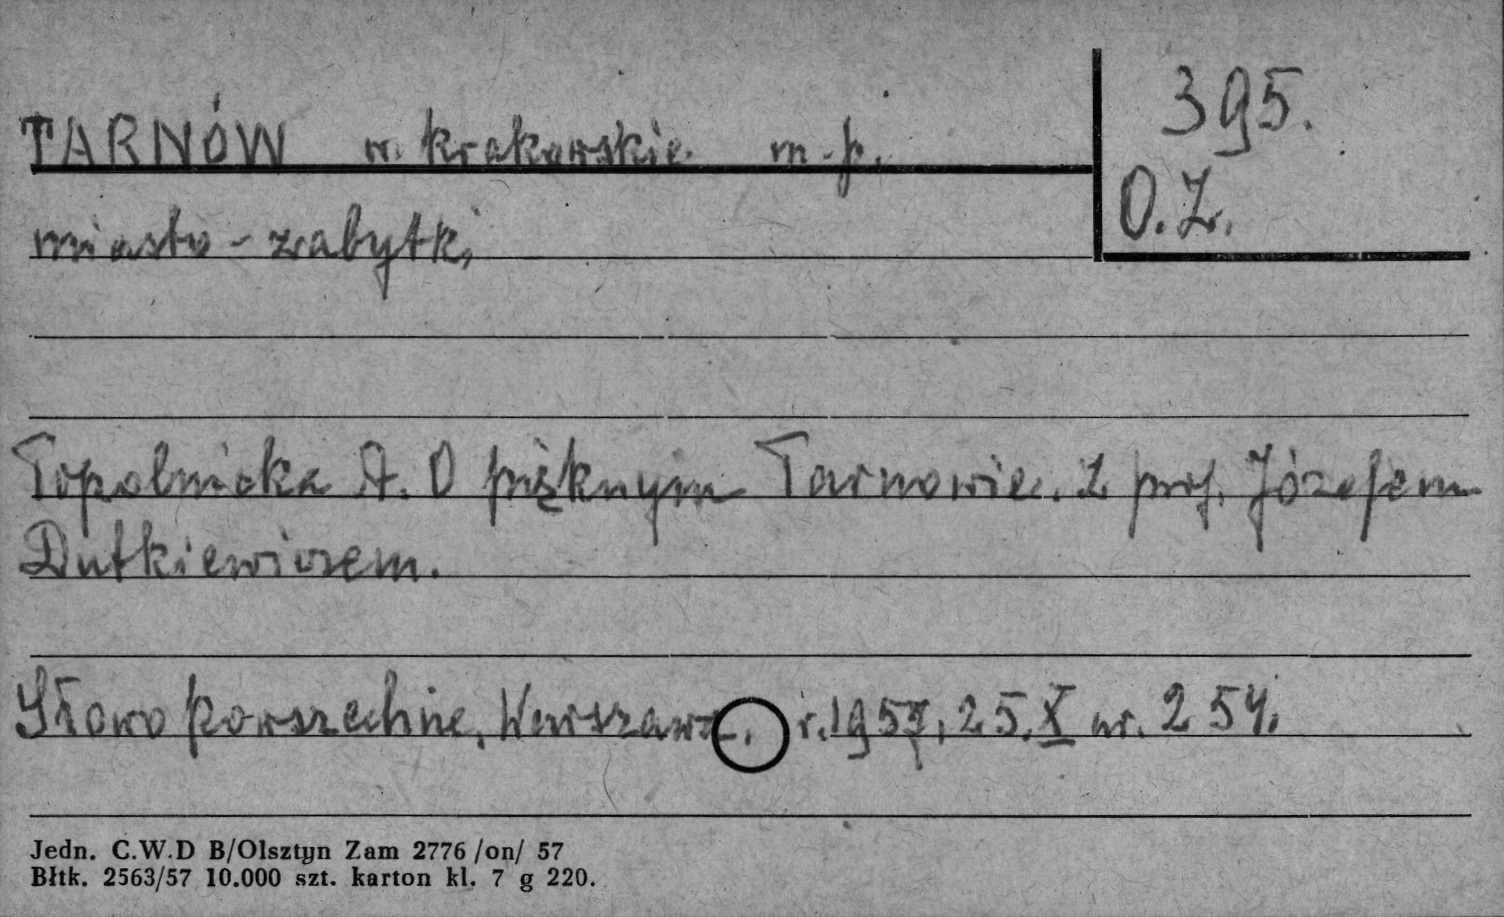 TARNÓW w. krakowskie. m-p.
395.
O.Z.
miasto - zabytki
Topolnicka A. O pięknym Tarnowie. Z prof. Józefem
Dutkiewiczem.
Słowo Powszechne, Warszawa, r. 1957, 25. X nr. 254.
Jedn. C.W.D B/Olsztyn Zam 2776 /on/ 57
Błtk. 2563/57 10.000 szt. karton kl. 7 g 220.